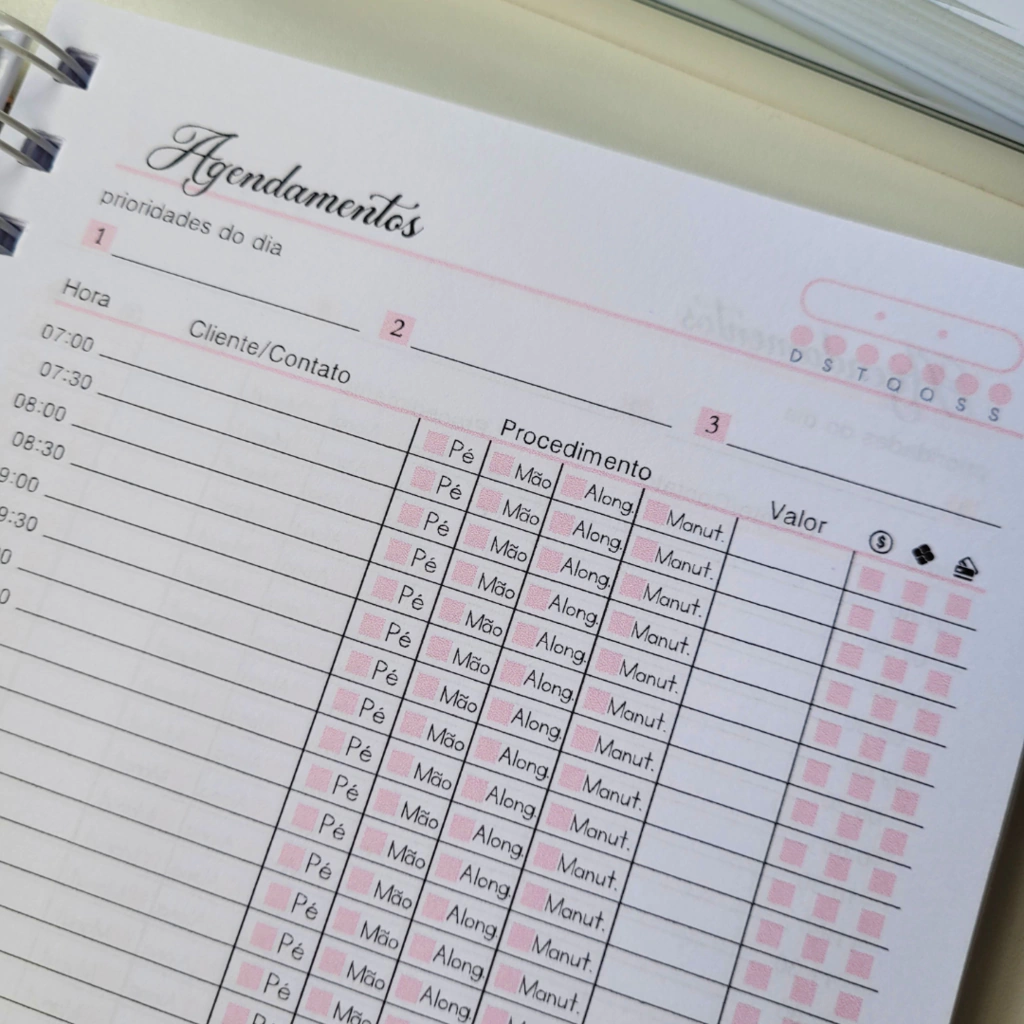 Agendamentos
prioridades do dia
D S T Q Q S S
1 2 3
Hora Cliente/Contato Procedimento Valor $
07:00 Pé Mão Along. Manut.
07:30 Pé Mão Along. Manut.
08:00 Pé Mão Along. Manut.
08:30 Pé Mão Along. Manut.
9:00 Pé Mão Along. Manut.
9:30 Pé Mão Along. Manut.
0 Pé Mão Along. Manut.
0 Pé Mão Along. Manut.
Pé Mão Along. Manut.
Pé Mão Along. Manut.
Pé Mão Along. Manut.
Pé Mão Along. Manut.
Pé Mão Along. Manut.
Pé Mão Along.
Pé Mão